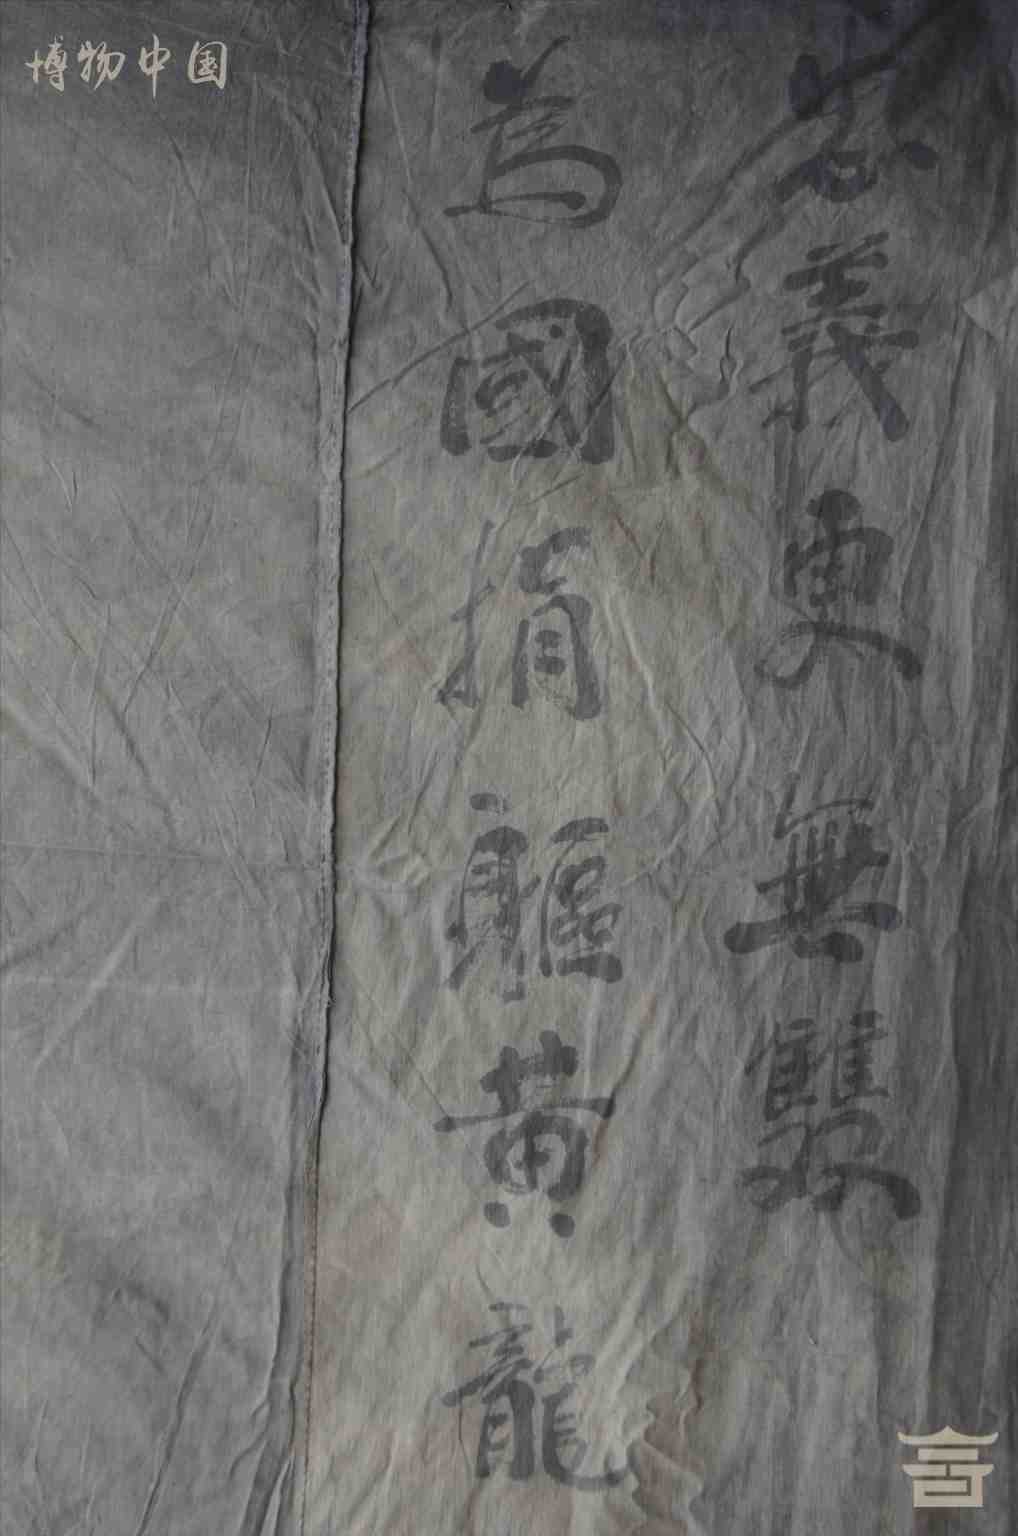 博物中国
忠義更無雙
為國捐軀黃龍